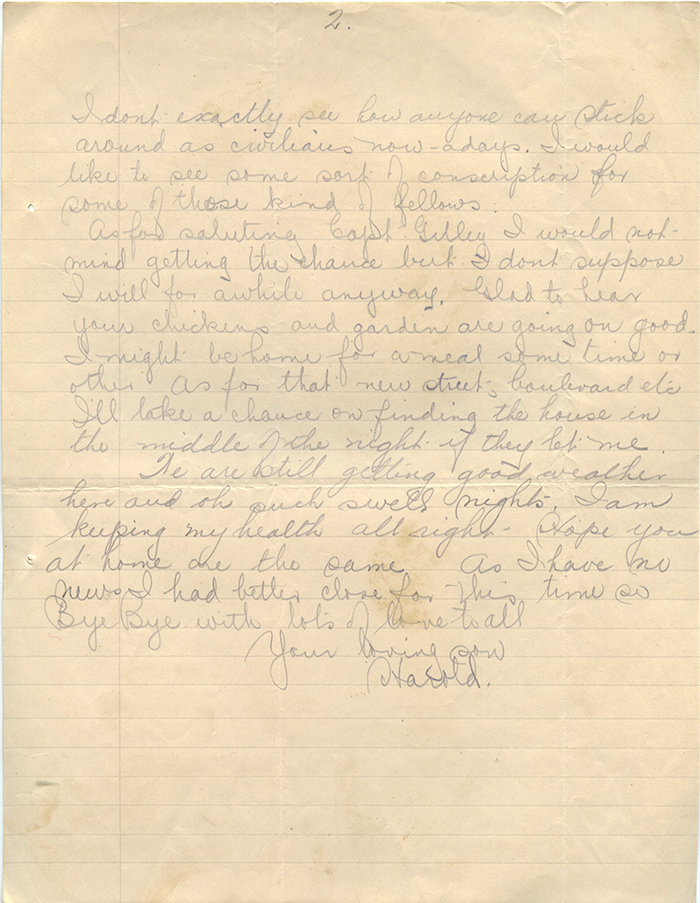 2.
I dont exactly see how anyone can stick
around as civilians now-adays. I would
like to see some sort of conscription for
some of those kind of fellows.
As for saluting Capt. Gilley I would not
mind getting the chance but I dont suppose
I will for awhile anyway. Glad to hear
your chickens and garden are going on good.
I might be home for a meal some time or
other. As for that new street, boulevard etc
I'll take a chance on finding the house in
the middle of the night if they let me.
We are still getting good weather
here and oh such swell nights. I am
keeping my health all right - Hope you
at home are the same. As I have no
news I had better close for this time so
Bye Bye with lots of love to all
Your loving son
Harold.